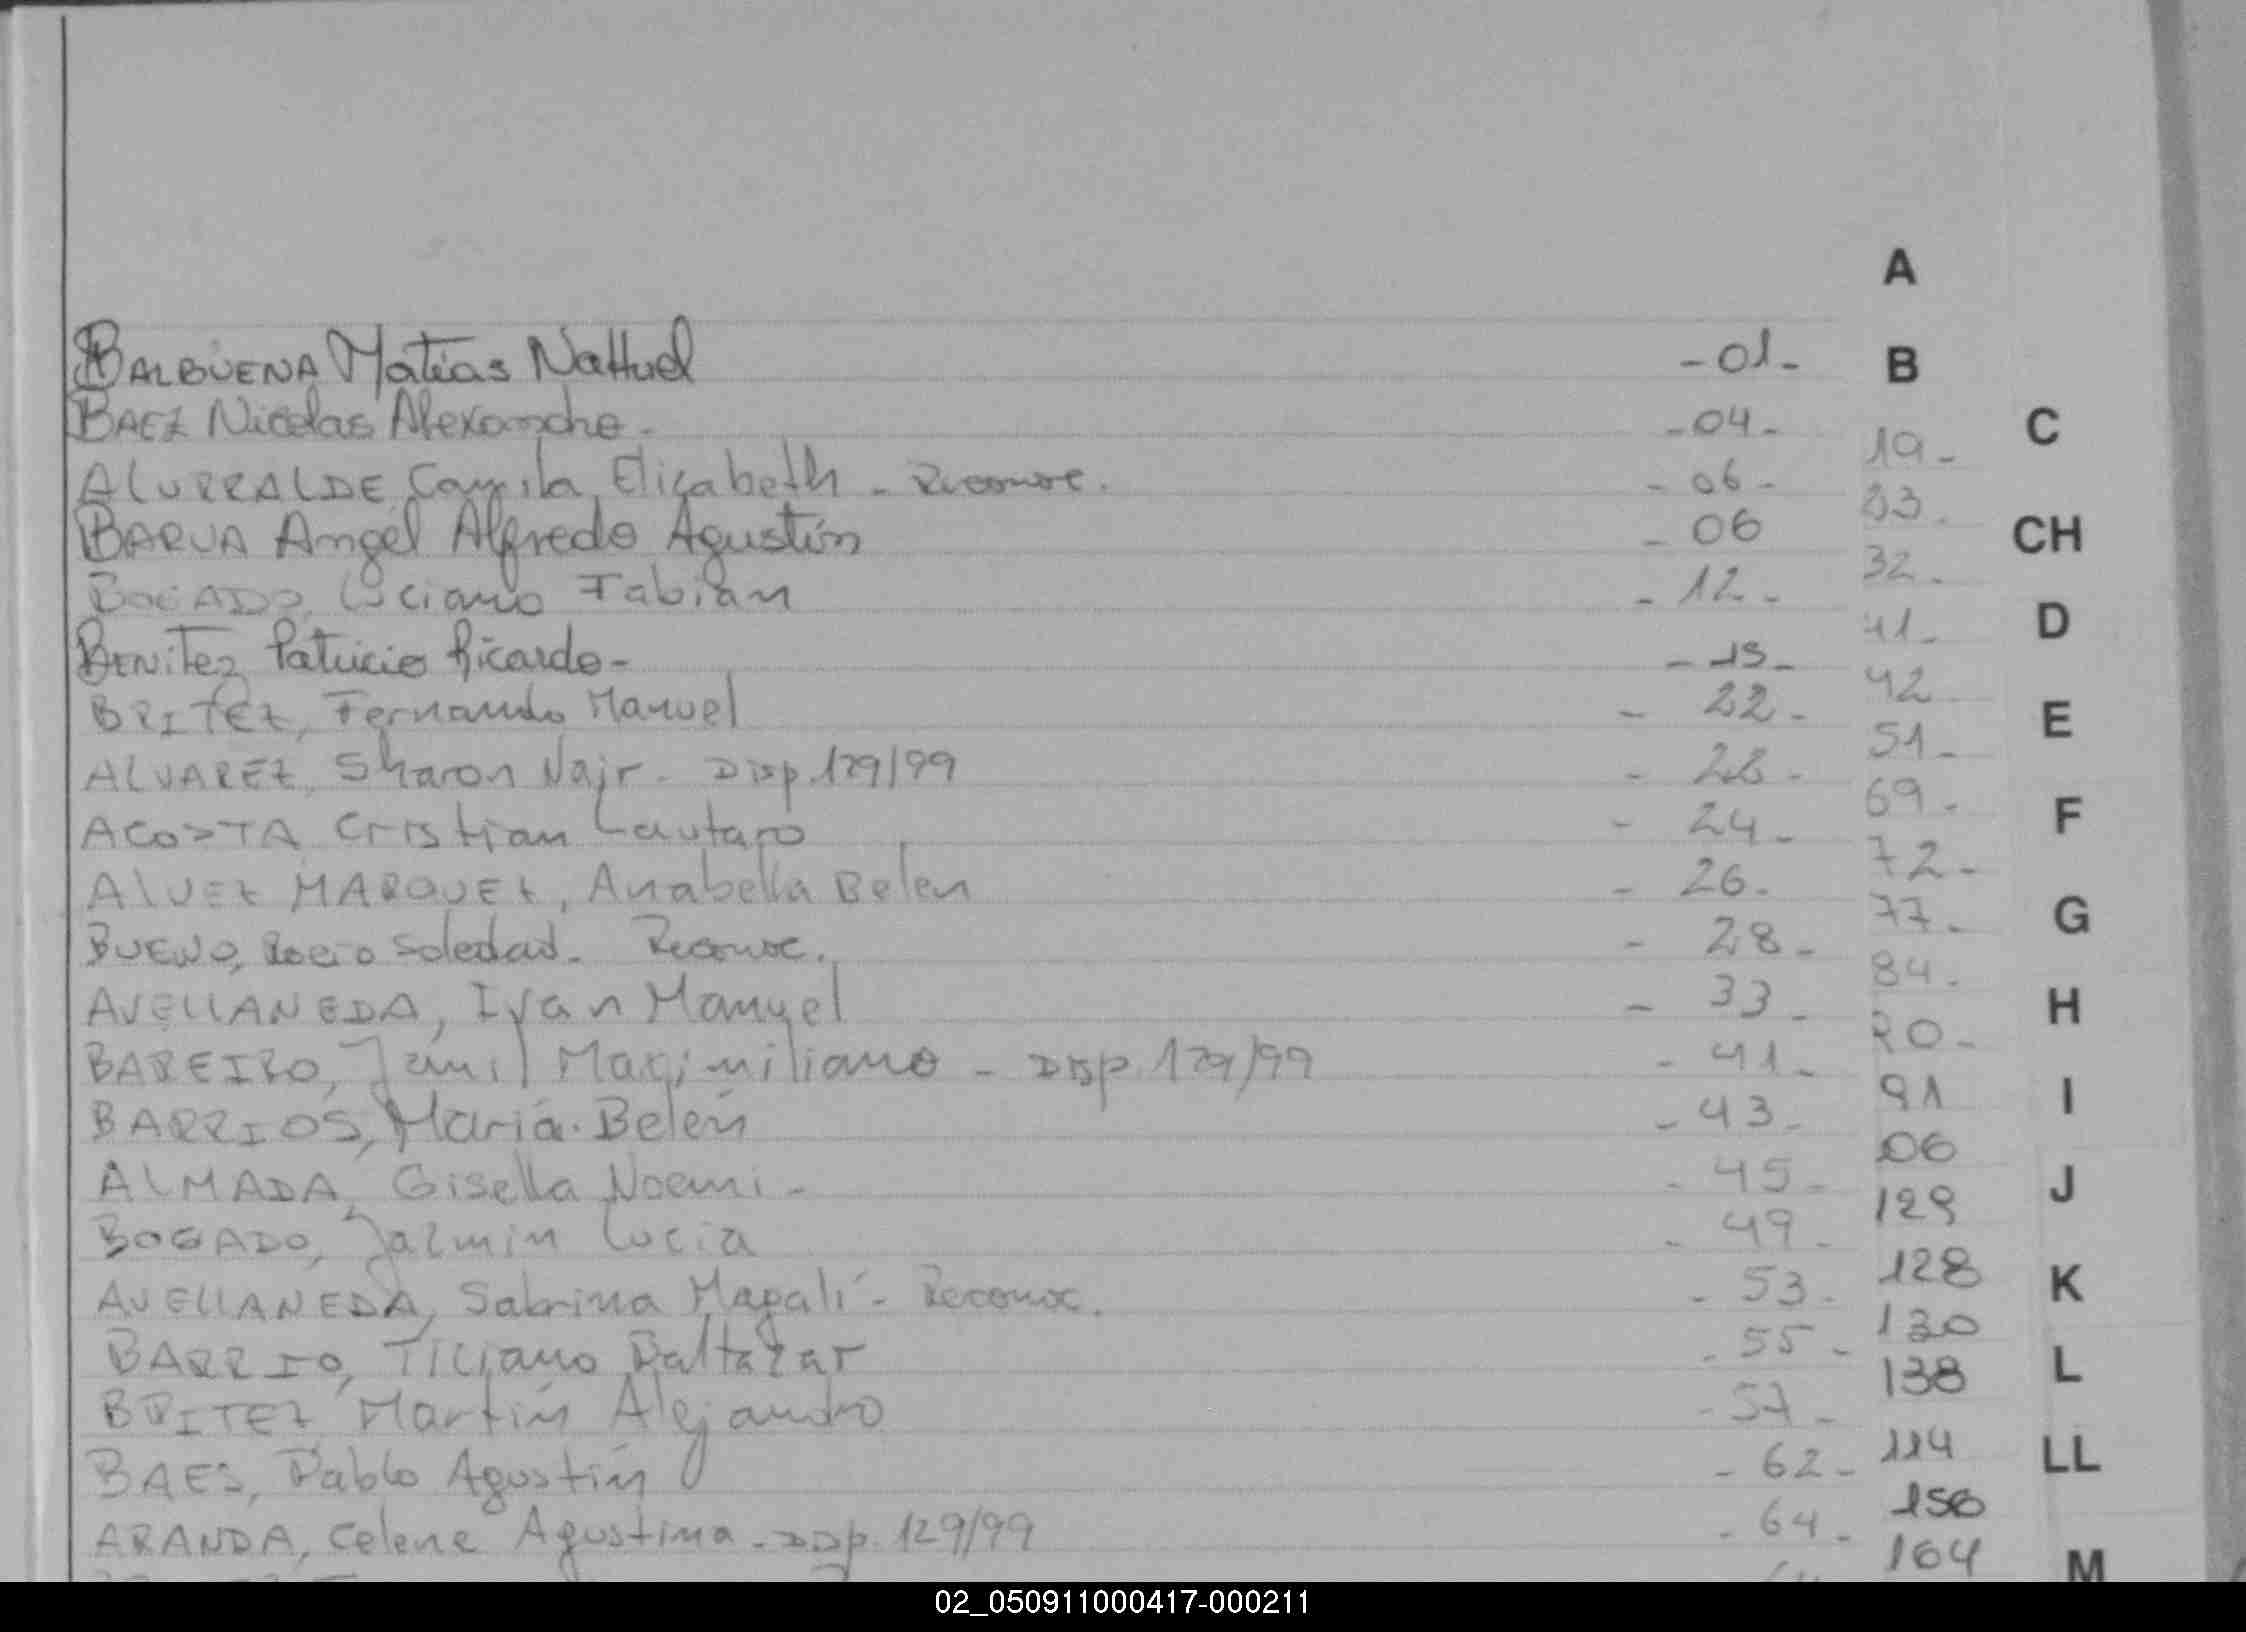 A
BALBUENA Matias NaHuel -01- B
BAEZ Nicolas Alexandro- -04- 19- C
ALURRALDE, Camila Elizabeth - Reconoc. - 06 -
BARUA Angel Alfredo Agustín - 06 33. CH
BOGADO, Luciano Fabian - 12 - 32.
BENITEZ Patricio Ricardo- - 15 - 41- D
BRITEZ, Fernando Manuel - 22 - 42
E
ALVAREZ, Sharon Nair - Disp. 129/99 - 22 - 51-
ACOSTA Cristian Lautaro - 24 - 69- F
ALVEZ MARQUEZ, Anabella Belen - 26- 72-
BUENO, Rocio Soledad. Reconoc. - 28 - 77- G
AVELLANEDA, Ivan Manuel - 33 - 84- H
BAREIRO, Jamil Maximiliano - Disp. 129/99 - 41 - 20-
BARRIOS, María Belén - 43 - 91 I
ALMADA, Gisella Noemi- - 45 - 06 J
BOGADO, Jazmin Lucia - 49 - 129
AVELLANEDA, Sabrina Magalí - Reconoc. - 53 - 128 K
BARRIO, Ticiano Baltazar - 55 - 130
BRITEZ Martín Alejandro - 57 - 138 L
BAES, Pablo Agustín - 62 - 114 LL
ARANDA, Celene Agustina - Disp. 129/99 - 64 - 156
164 M
02_050911000417-000211